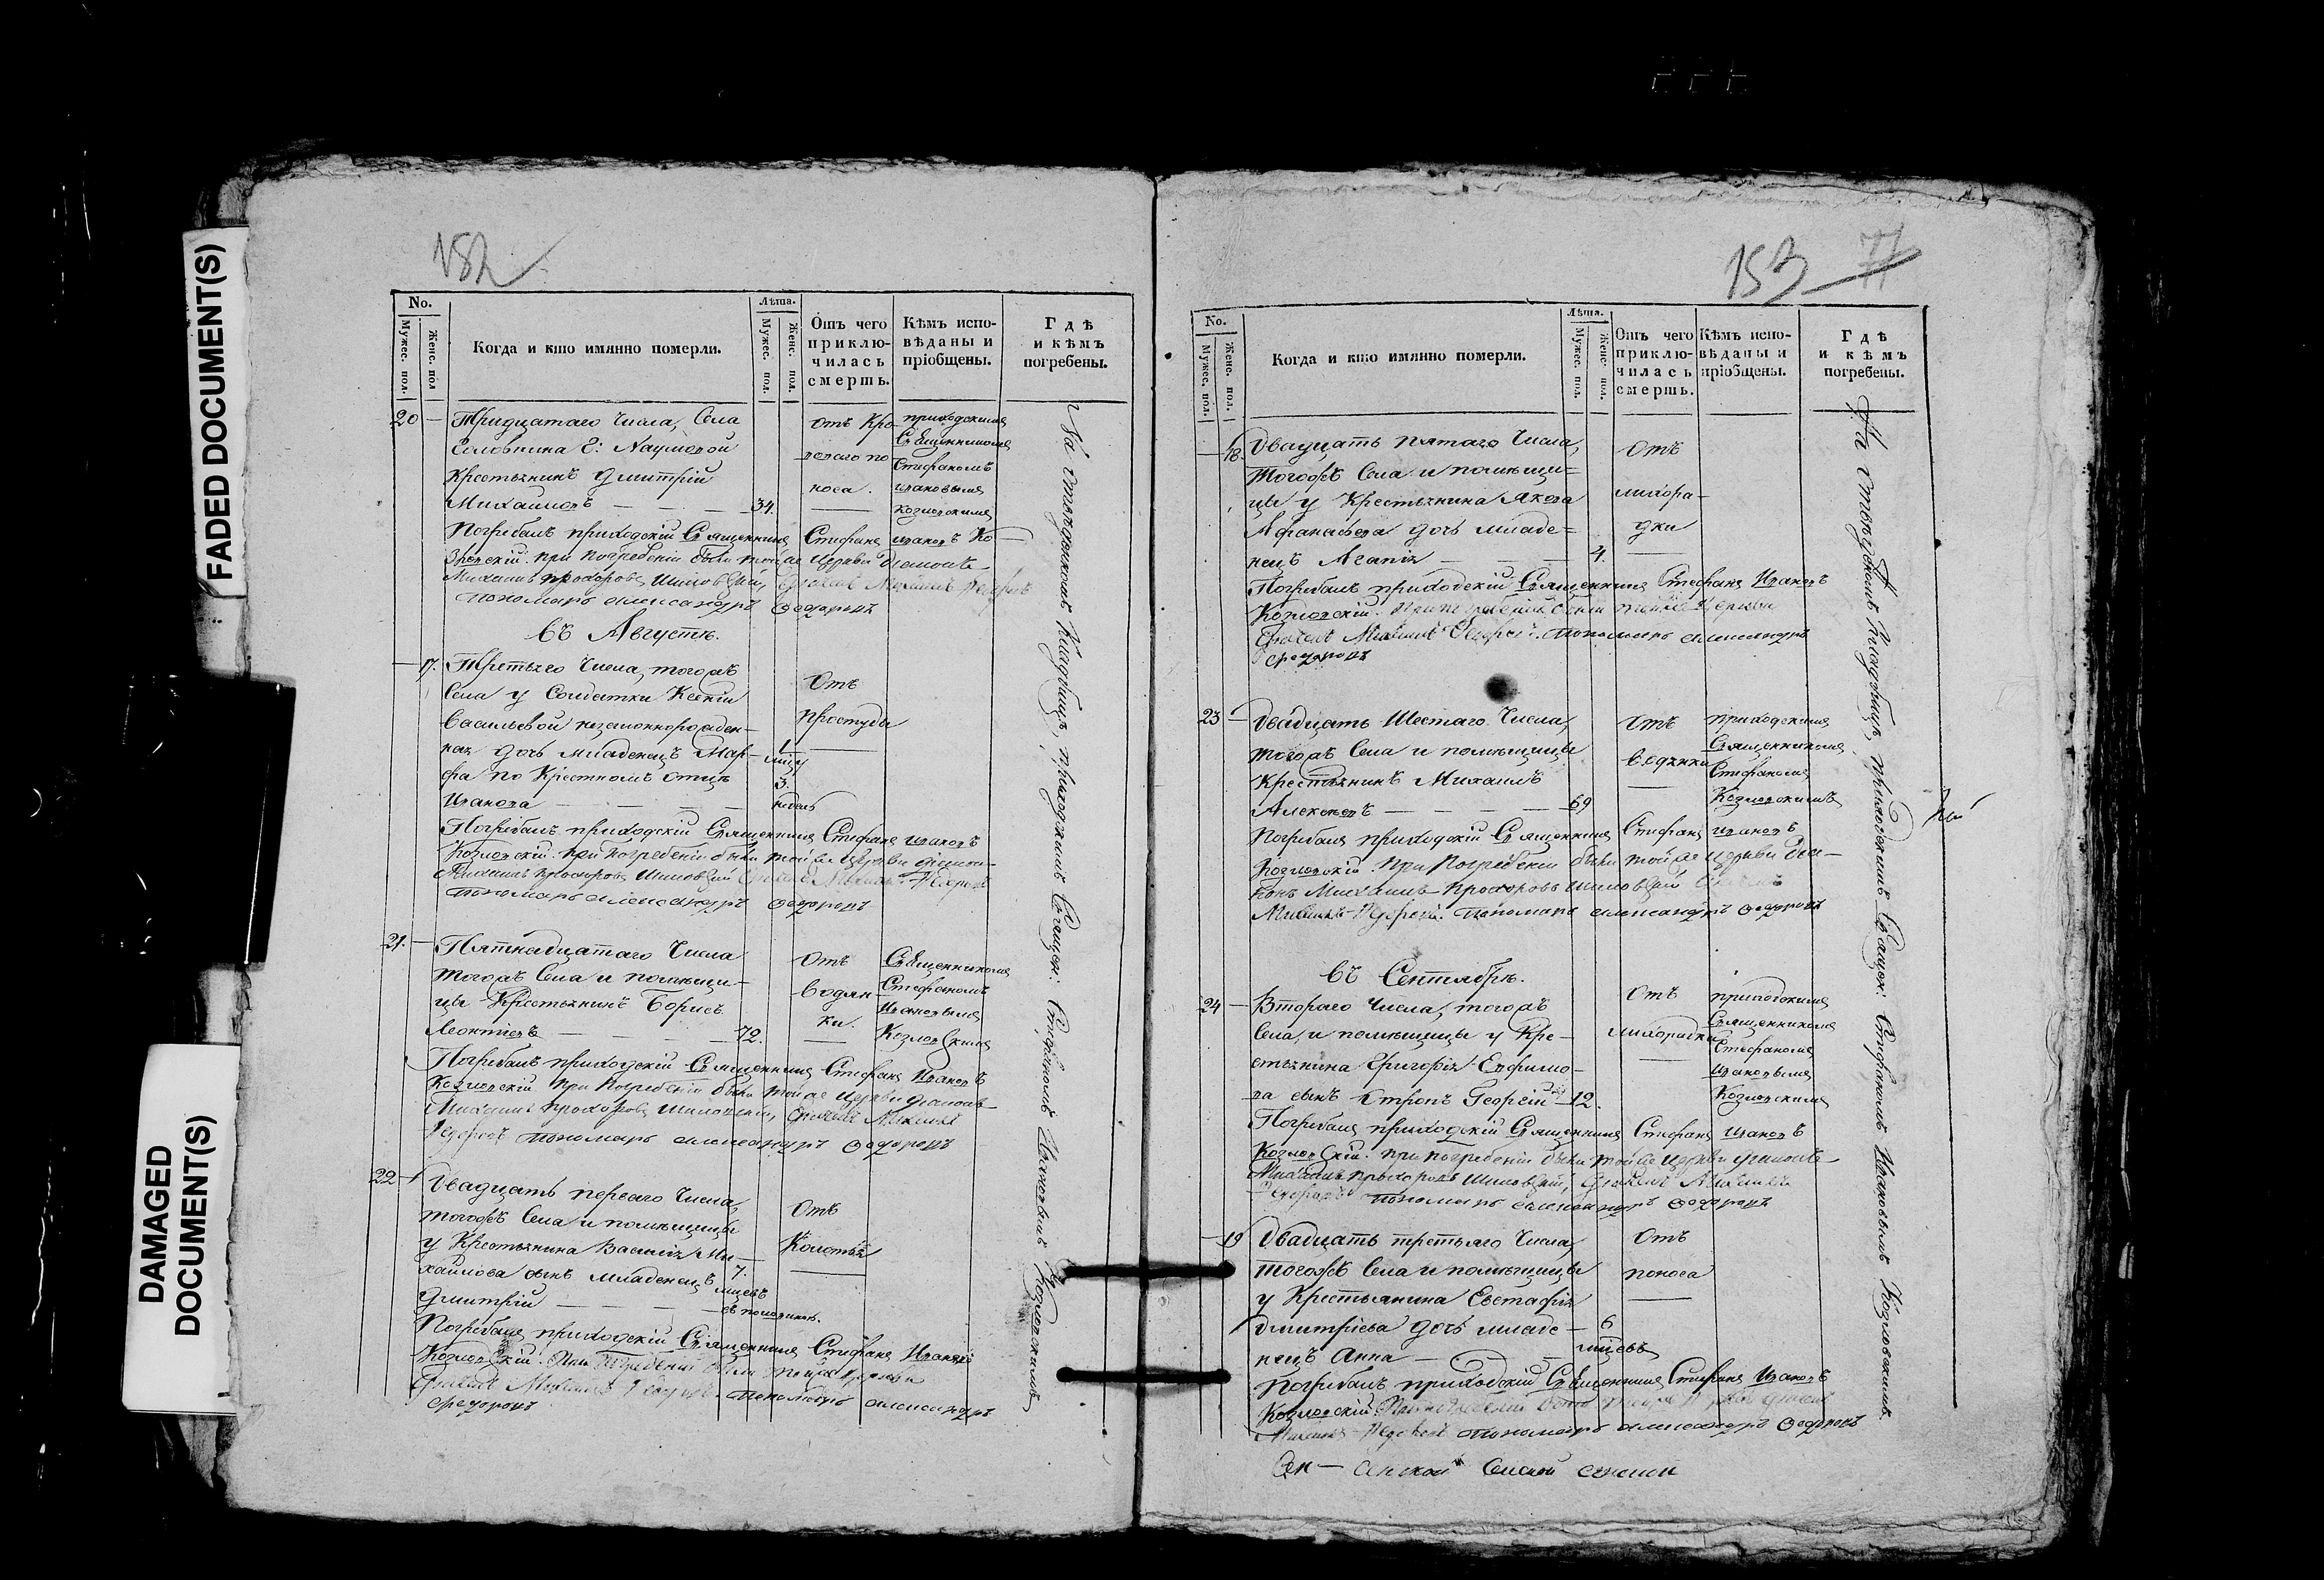 FADED DOCUMENT(S)
DAMAGED
DOCUMENT(S)
152
No.
Мужес. пол.
Женс. пол
Когда и кто имянно померли.
Лѣта.
Мужес. пол.
Женс. пол.
Отъ чего
приклю-
чилась
смерть.
Кѣмъ испо-
вѣданы и
пріобщены.
Гдѣ
и кѣмъ
погребены.
20 — Тридцатаго Числа, Села
Наумовой
Крестьянинъ Дмитрій
Михайловъ — 34.
отъ Кро-
ваго по
носа.
приходскимъ
Священникомъ
Стефаномъ
Ивановымъ
Козловскимъ
Погребалъ приходскій Священникъ Стефанъ Ивановъ Ко-
зловскій. при Погребеніи были тойже Церкви Діаконъ
Михаилъ Прохоровъ
Пономарь Александръ Федоровъ
Въ Августѣ.
— 17. Третьяго Числа, тогожъ
Села у Солдатки Ксеніи
Васильевой незаконнорожден-
ная дочь младенецъ Мар-
фа по Крестномъ отцѣ
Иванова —
1
мцъ
3.
недель
Отъ
простуды
Погребалъ приходскій Священникъ Стефанъ Ивановъ
Козловскій. при Погребеніи были тойже Церкви Діакон
Михаилъ Прохоровъ
Пономарь Александръ Федоровъ
21. — Пятнадцатаго Числа
тогожъ Села и помѣщи-
цы Крестьянинъ Борисъ
Леонтіевъ — 72.
Отъ
водян-
ки.
Священникомъ
Стефаномъ
Ивановымъ
Козловскимъ
Погребалъ приходскій Священникъ Стефанъ Ивановъ
Козловскій при Погребеніи были тойже Церкви Діаконъ
Михаилъ Прохоровъ
Пономарь Александръ Федоровъ
22 — Двадцать перваго Числа,
тогожъ Села и помѣщицы
у Крестьянина Василія Ми-
хайлова сынъ младенецъ
Дмитрій —
7.
мцовъ
съ половин.
Отъ
Колотья
Погребалъ приходскій Священникъ Стефанъ Ивановъ
Козловскій. При Погребеніи были тойже Церкви
Пономарь Александръ
Федоровъ
На отведенномъ Кладбищѣ, приходскимъ Священ: Стефаномъ Ивановымъ Козловскимъ
153 77
No.
Мужес. пол.
Женс. пол.
Когда и кто имянно померли.
Лѣта.
Мужес. пол.
Женс. пол.
Отъ чего
приклю-
чилась
смерть.
Кѣмъ испо-
вѣданы и
пріобщены.
Гдѣ
и кѣмъ
погребены.
— 18. Двадцать пятаго Числа,
тогожъ Села и помѣщи=
цы у Крестьянина Якова
Афанасьева дочь младе=
нецъ Агапія — 4.
Отъ
лихора-
дки
Погребалъ приходскій Священникъ Стефанъ Ивановъ
Козловскій.
Пономарь Александръ
Федоровъ
23 — Двадцать Шестаго Числа,
тогожъ Села и помѣщицы
Крестьянинъ Михаилъ
Алексеевъ — 69
отъ
водянки
приходскимъ
Священникомъ
Стефаномъ
Козловскимъ
Погребалъ приходскій Священникъ Стефанъ Ивановъ
Козловскій. При Погребеніи были тойже Церкви Діа-
конъ Михаилъ Прохоровъ
Пономарь Александръ Федоровъ
Въ Сентябрѣ.
24 — Втораго Числа, тогожъ
Села, и помѣщицы у Кре-
стьянина Григорія Евфимо-
ва сынъ отрокъ Георгій — 12.
Отъ
лихорадки
приходскимъ
Священникомъ
Стефаномъ
Ивановымъ
Козловскимъ
Погребалъ приходскій Священникъ Стефанъ Ивановъ
Козловскій. при погребеніи были тойже Церкви Діаконъ
Михаилъ Прохоровъ
Пономарь Александръ Федоровъ
— 19 Двадцать третьяго Числа,
тогожъ Села и помѣщицы
у Крестьянина Евстафія
Дмитріева дочь младе-
нецъ Анна —
6
мцовъ
Отъ
поноса
Погребалъ приходскій Священникъ Стефанъ Ивановъ
Козловскій.
Пономарь Александръ Федоровъ
На отведенномъ Кладбищѣ, приходскимъ Священ: Стефаномъ Ивановымъ Козловскимъ.